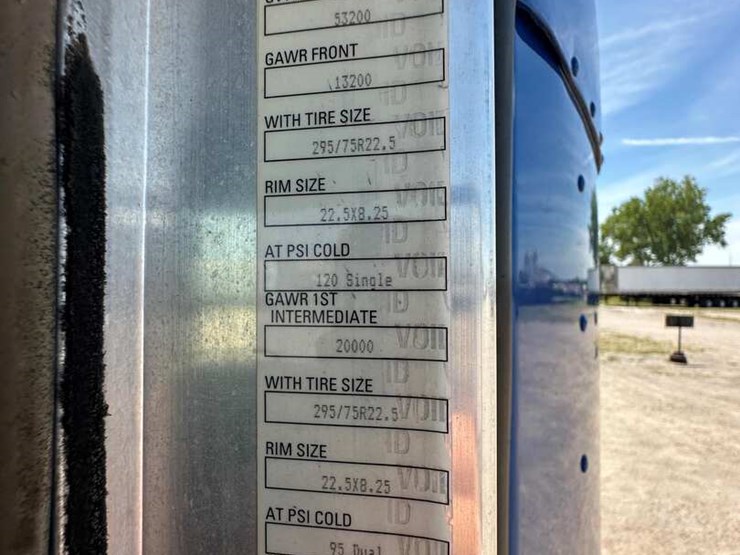 53200
GAWR FRONT
13200
WITH TIRE SIZE
295/75R22.5
RIM SIZE
22.5X8.25
AT PSI COLD
120 Single
GAWR 1ST
INTERMEDIATE
20000
WITH TIRE SIZE
295/75R22.5
RIM SIZE
22.5X8.25
AT PSI COLD
95 Dual